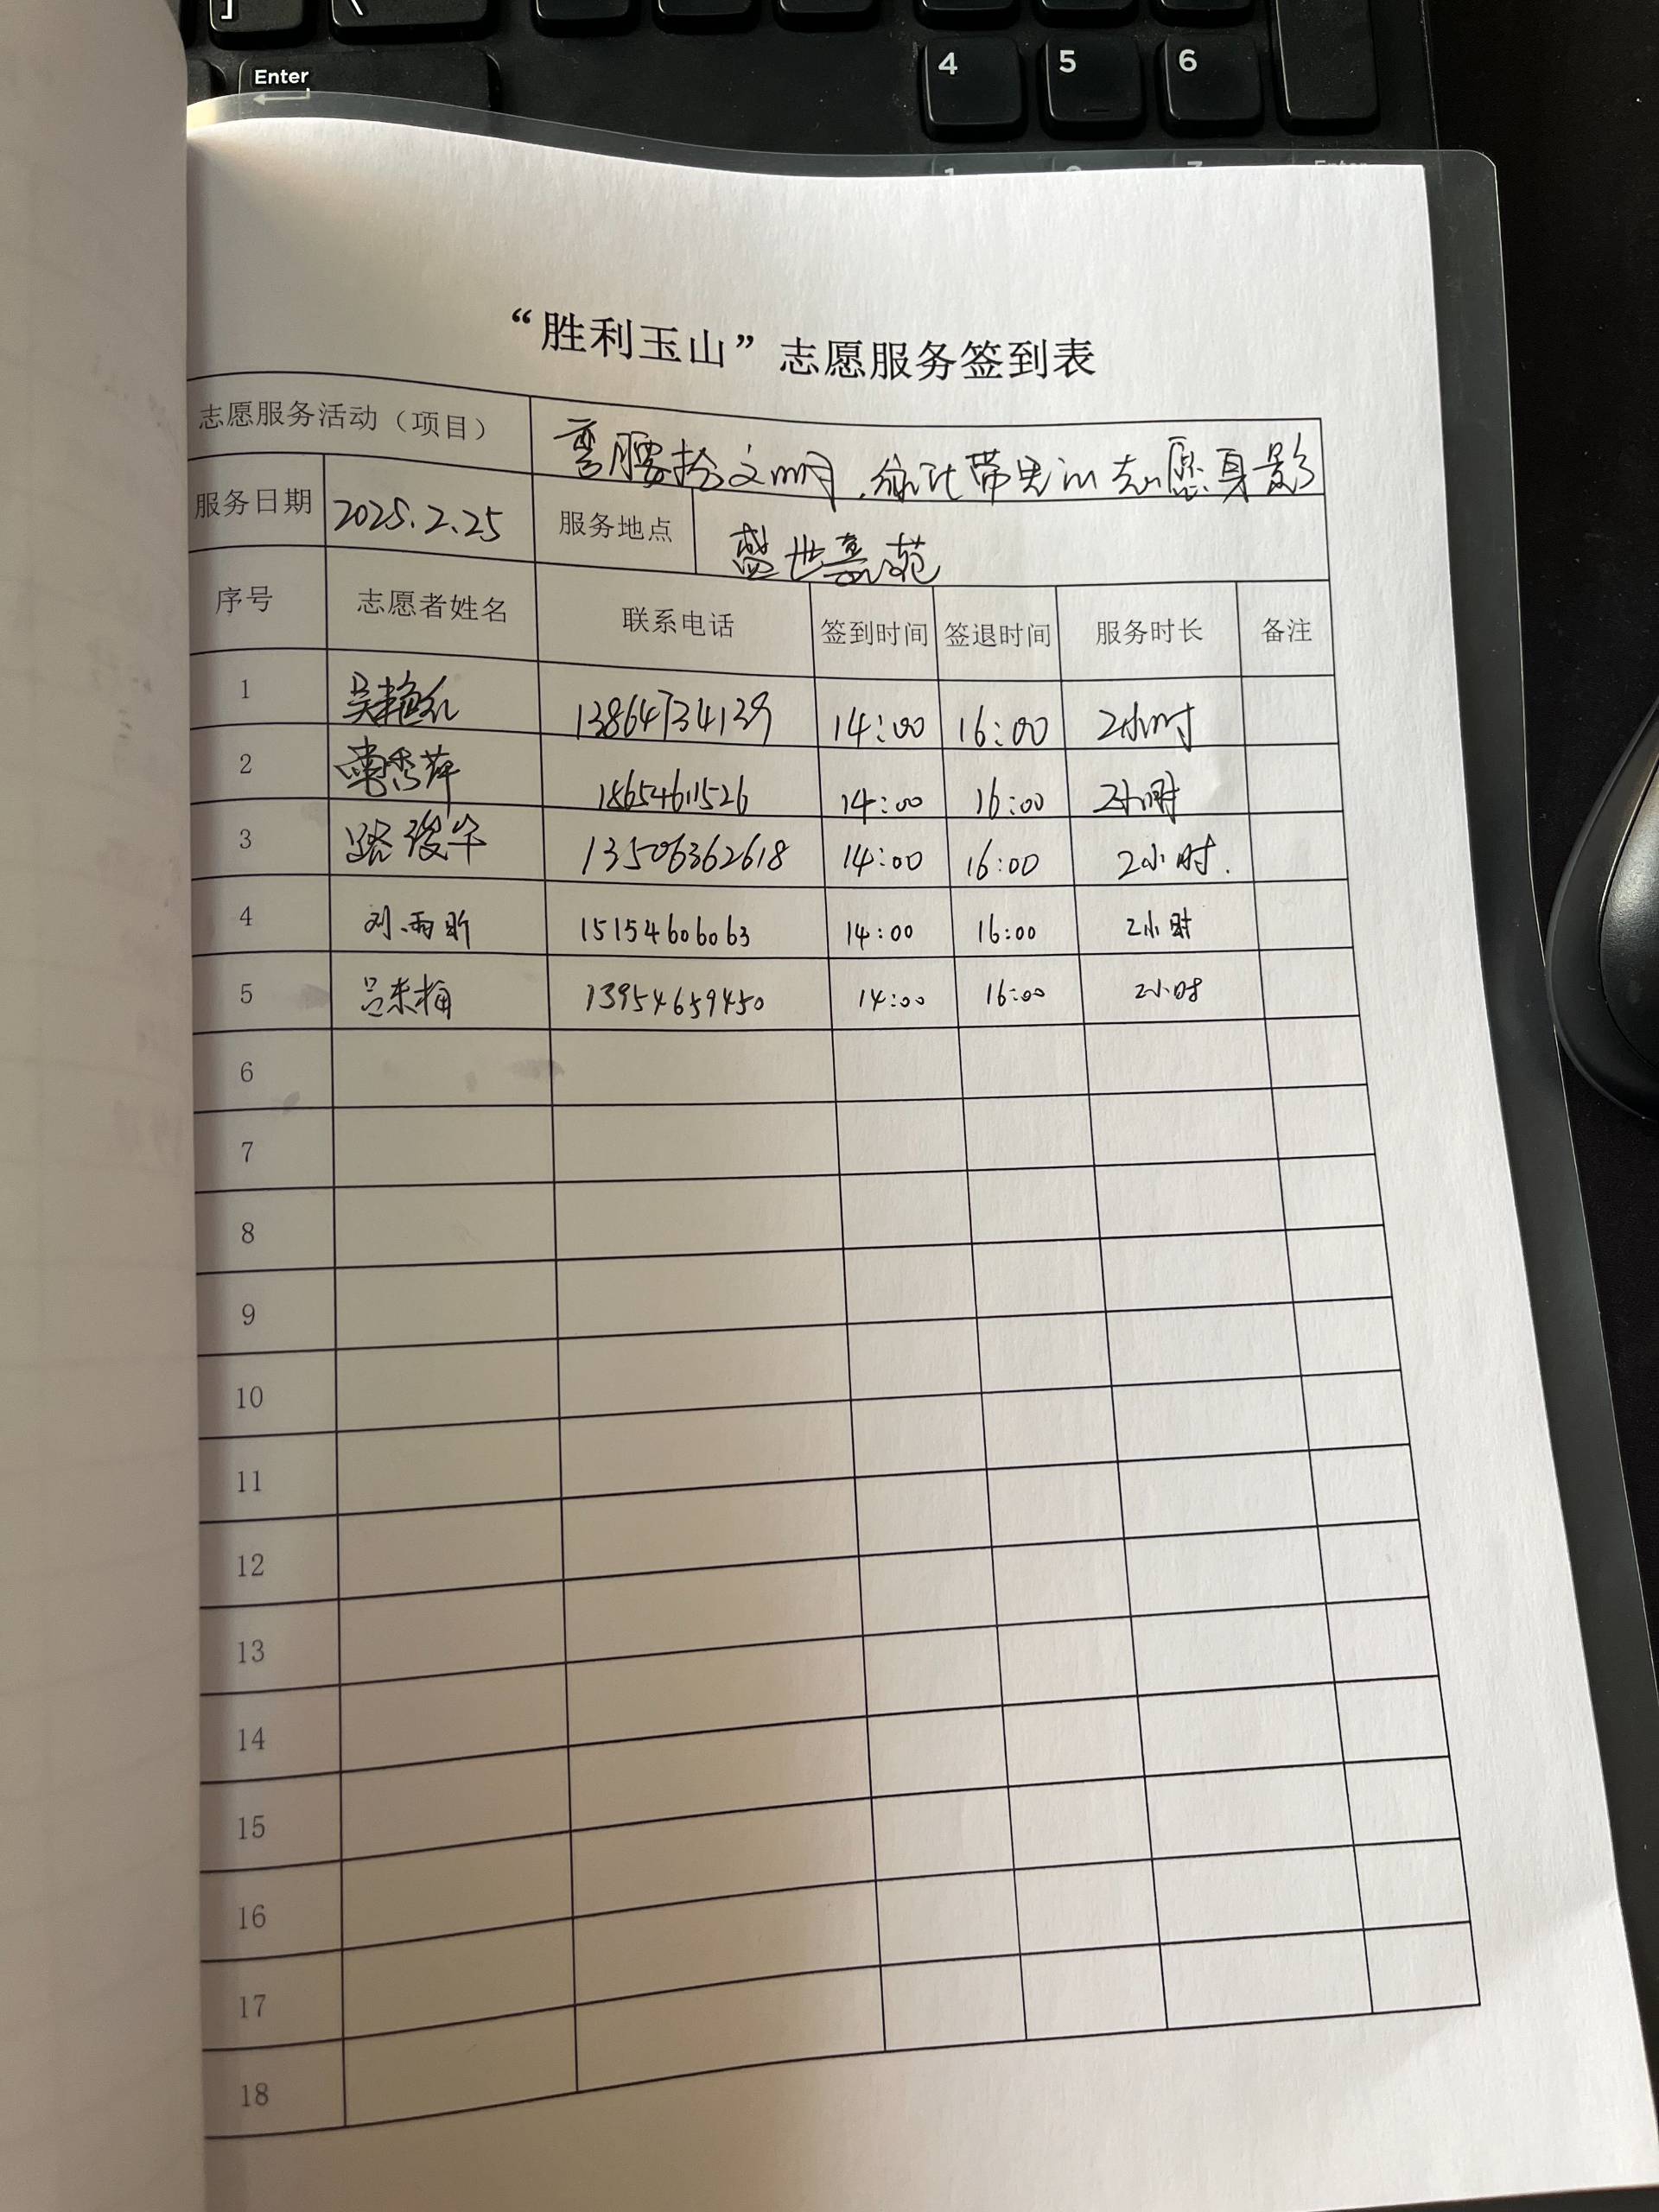 ]
\
Enter
4
5
6
“胜利玉山”志愿服务签到表
志愿服务活动（项目） 弯腰拾文明， 带 志愿身影
服务日期 2025.2.25 服务地点 盛世嘉苑
序号 志愿者姓名 联系电话 签到时间 签退时间 服务时长 备注
1 吴艳红 13864734139 14:00 16:00 2小时
2 秀萍 18654611526 14:00 16:00 2小时
3 路俊华 13506362618 14:00 16:00 2小时.
4 刘雨昕 15154606063 14:00 16:00 2小时
5 吕来梅 13954659450 14:00 16:00 2小时
6
7
8
9
10
11
12
13
14
15
16
17
18